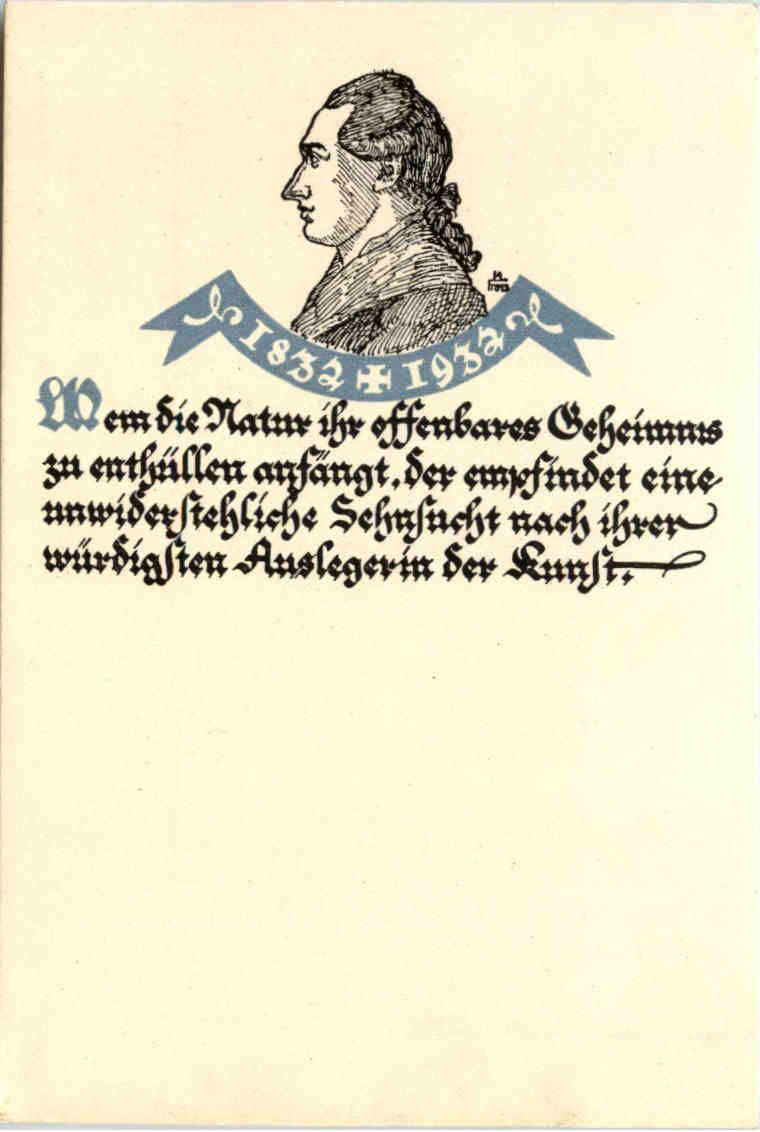 1832 ✠ 1932
Wem die Natur ihr offenbares Geheimnis
zu enthüllen anfängt, der empfindet eine
unwiderstehliche Sehnsucht nach ihrer
würdigsten Auslegerin der Kunst.